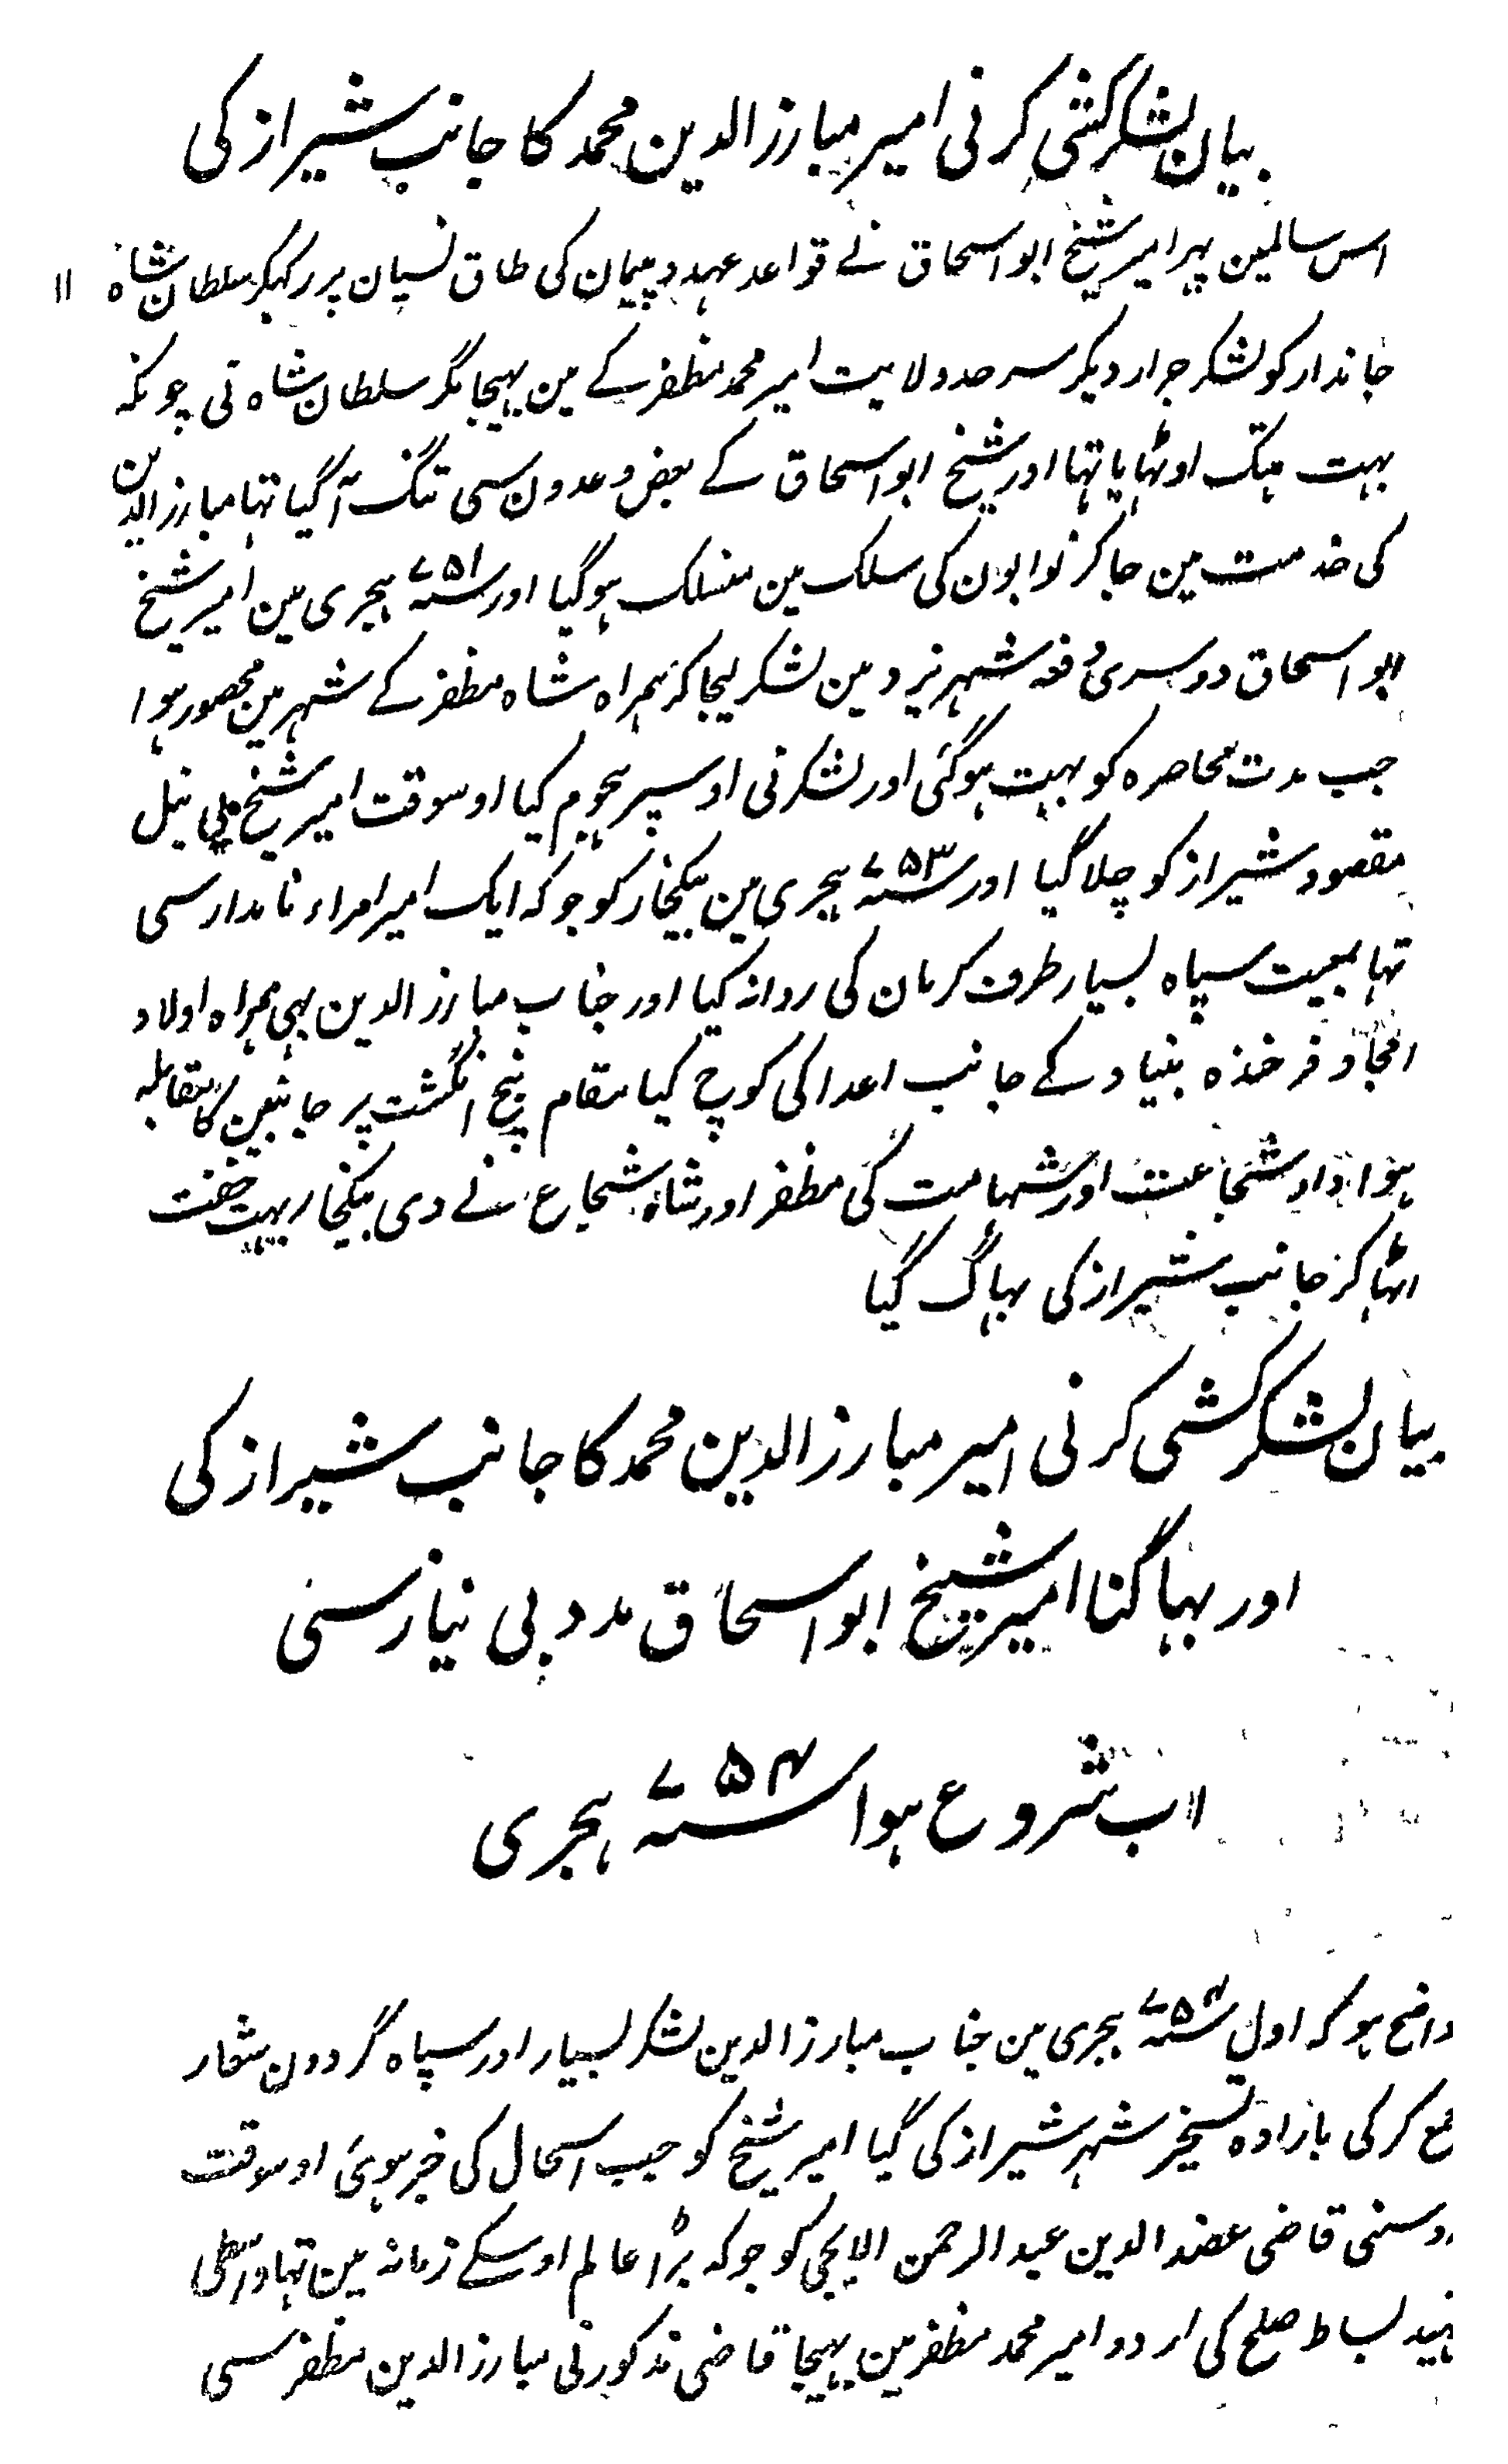 بیان لشکرکشی کرنی امیر مبارز الدین محمد کا جانب شیراز کی
اس سالمین پہر امیر شیخ ابو اسحاق نے قواعد عہد و پیمان کی طاق نسیان پر رکہکر سلطان شاہ ۱۱
جاندار کو لشکر جرار دیکر سرحد ولایت امیر محمد مظفر کے مین بہیجا مگر سلطان شاہ نی چونکہ
بہت ہتک اوٹہایا تہا اور شیخ ابو اسحاق کے بعض وعدون سی تنگ آگیا تہا مبارز الدین
کی خدمت مین جاکر نوابون کی سلک مین منسلک ہوگیا اور سنہ ۷۵۱ ہجری مین امیر شیخ
ابو اسحاق دوسری دفعہ شہر یزد مین لشکر لیجاکر ہمراہ شاہ مظفر کے شہر مین محصور ہوا
جب مدت محاصرہ کو بہت ہوگئی اور لشکر نی اوسپر ہجوم کیا اوسوقت امیر شیخ بی نیل
مقصود شیراز کو چلا گیا اور سنہ ۷۵۳ ہجری مین بیکچار کو جو کہ ایک امیر امراء نامدار سی
تہا بمعیت سپاہ بسیار طرف کرمان کی روانہ کیا اور جناب مبارز الدین بہی ہمراہ اولاد
امجاد فرخندہ بنیاد کے جانب اعدا کی کوچ کیا مقام پنج انگشت پر جانبین کا مقابلہ
ہوا داد شجاعت اور شہامت کی مظفر اور شاہ شجاع نے دی بیکچار بہت خفت
اٹہا کر جانب شیراز کی بہاگ گیا
بیان لشکرکشی کرنی امیر مبارز الدین محمد کا جانب شیراز کی
اور بہاگنا امیر شیخ ابو اسحاق مدد بی نیاز سی
اب شروع ہوا سنہ ۷۵۴ ہجری
واضح ہو کہ اول سنہ ۷۵۴ ہجری مین جناب مبارز الدین لشکر بسیار اور سپاہ گردون شمار
جمع کر کی بارادہ تسخیر شہر شیراز کی گیا امیر شیخ کو جب اسحال کی خبر ہوئی اوسوقت
اوسنی قاضی عضد الدین عبد الرحمن الایجی کو جو کہ بڑا عالم اوسکے زمانہ مین تہا واسطی
بساط صلح کی اردو امیر محمد مظفر مین بہیجا قاضی مذکور نی مبارز الدین مظفر سی